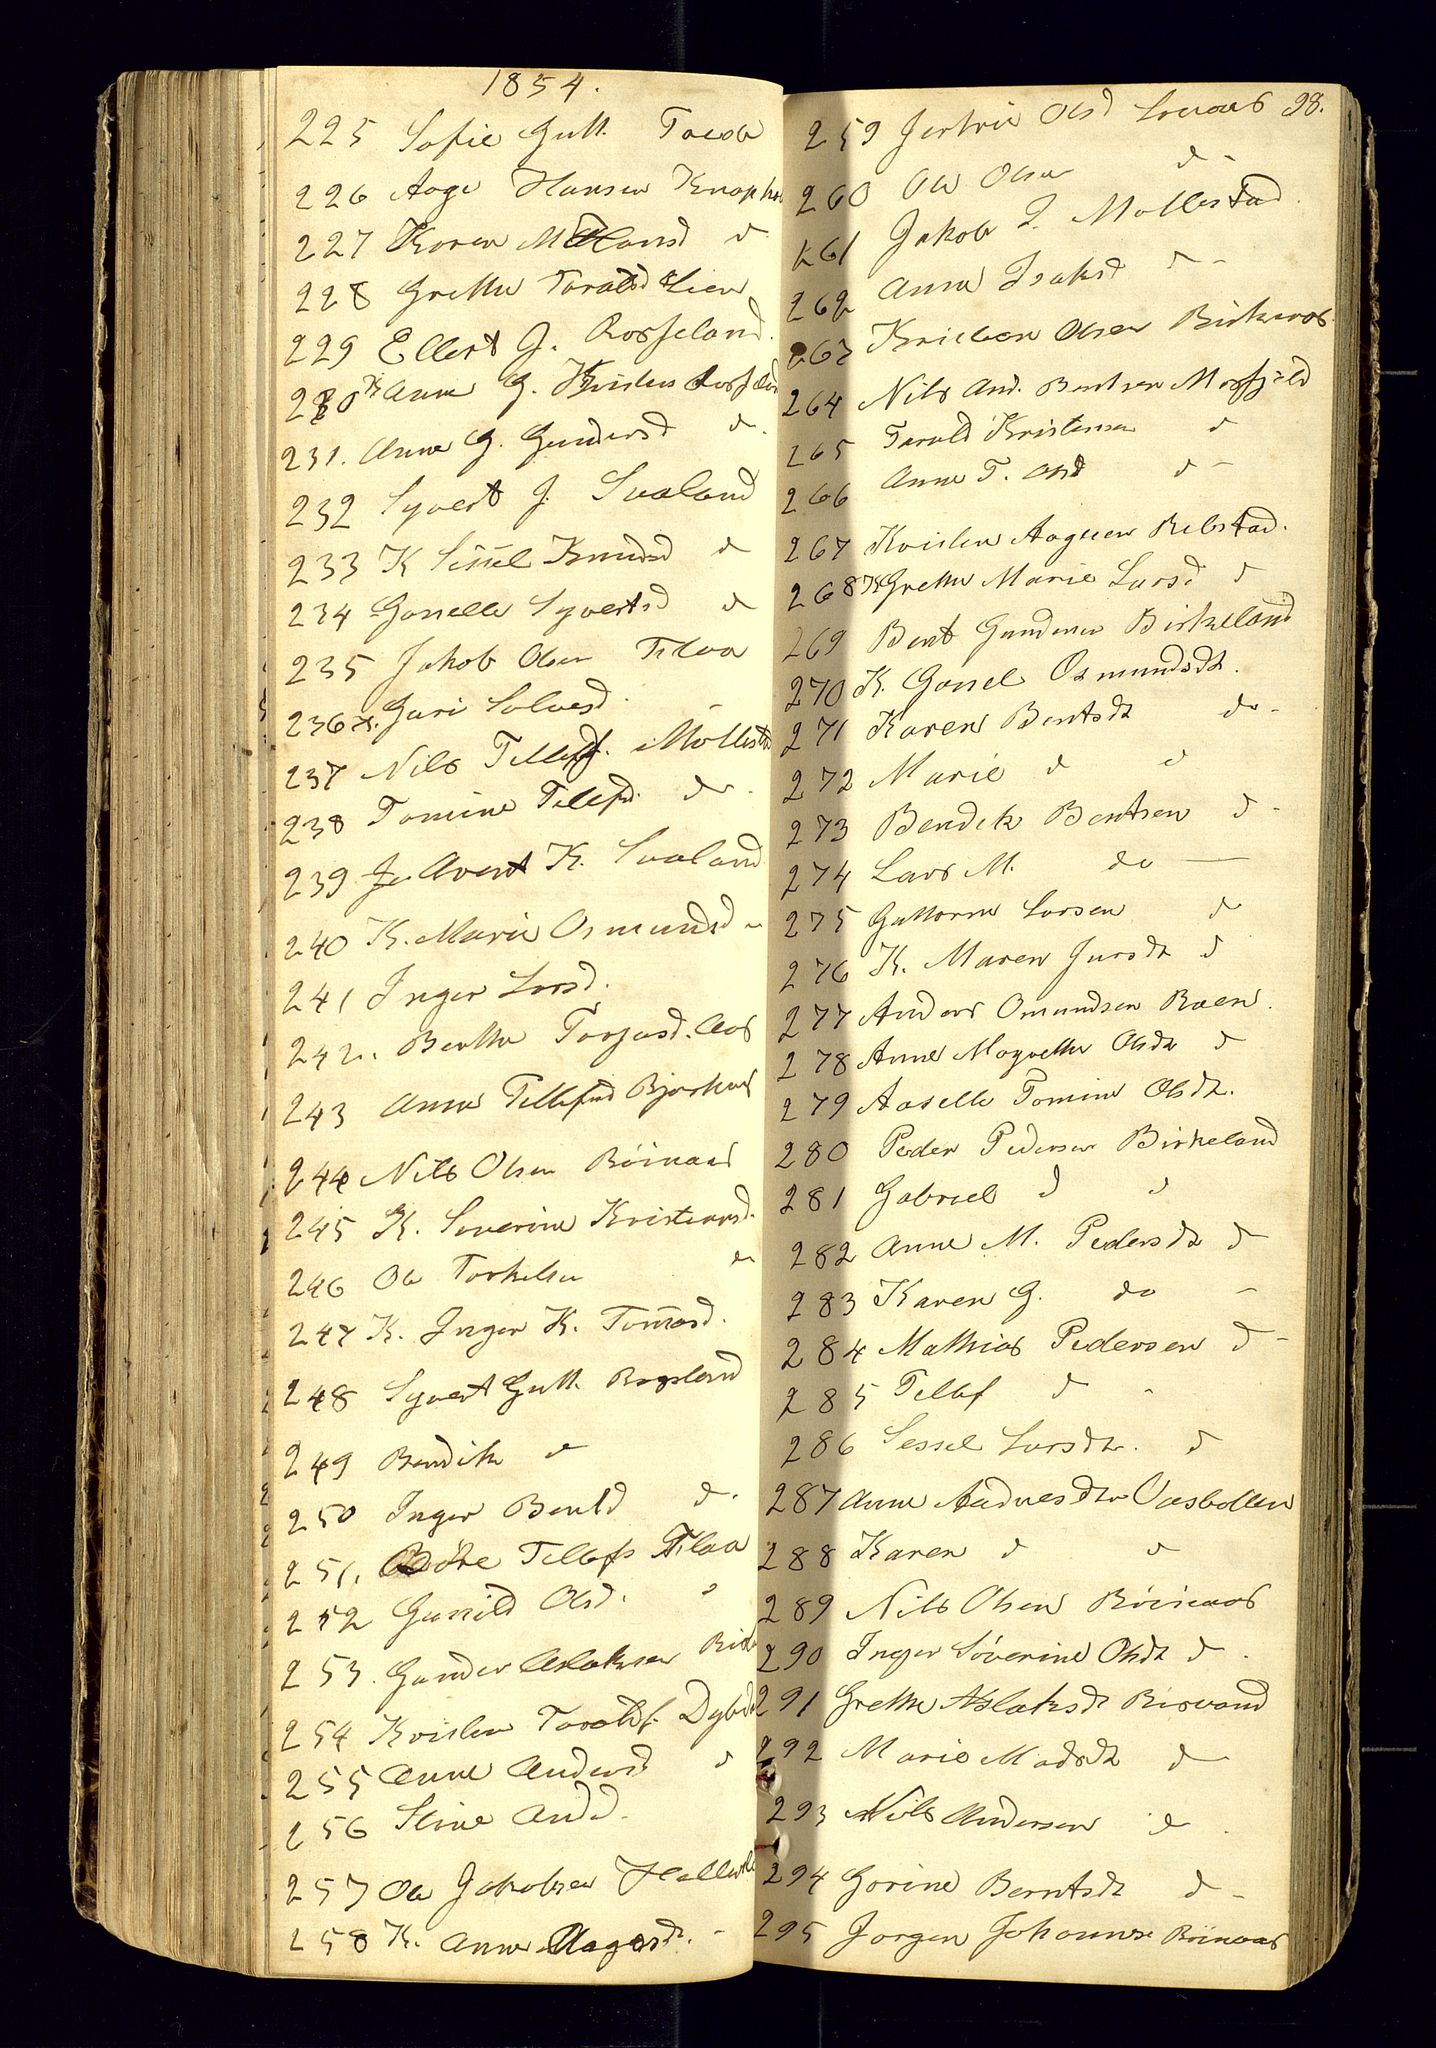 1854.
225 Sofie Gutt.
226 Aage Hansen
227 Karen M Hansd d
228 Grethe Taraldsd Lien
229 Ellert J. Rosseland.
230 K Anne G.
231. Anne G. Gundersd d.
232 Syvert J. Sualand
233 K Sissel Knudsd d
234 Gonelle Syvertsd d
235 Jakob Olsen Flaa
236 K. Guri Salvesd.
237 Nils Tellefs.
238 Tomine Tellefsd. do.
239 K. Sualand
240 K. Marie Osmundsd
241 Inger Larsd.
242. Berthe Torjusd. Aas
243 Anne Tellefsd
244 Nils Olsen Röinaas
245 K. Severine
246 Ole Torkelsen do
247 K. Inger K. Tomasd.
248 Syvert Gutt.
249 Bendik d
250 Inger d.
251. Tellefs Flaa
252 Gunild Olsd. "
253. Gunder Aslaksen
254 Kristen Taralds.
255 Anne Andersd d
256 Stine And d.
257 Ole Jakobsen
258 K. Anne Aagesd. -
259 Olsd 98.
260 Ole Olsen d -
261 Jakob I. Mollestad.
262 Anne Isaksd d -
263 Olsen Birkenas
264 Nils And. Bentsen Mosfjeld
265 Tarald Kristensen d
266 Anne T. Olsd d -
267 Kristen Aagesen Rebstad.
268 K Grethe Marie Larsd d
269 Bent Gundersen Birkeland
270 K. Gonel Osmundsdt.
271 Karen Bentsdt do -
272 Marie d d
273 Bendik Bentsen d -
274 Lars M. do —
275 Guttorm Larsen d
276 K. Maren d
277 Anders Omundsen Raen.
278 Anne Magrethe Olsdt d
279 Aaselle Tomine Olsdt.
280 Peder Pedersen Birkeland
281 Gabriel d d
282 Anne M. Pedersdt d
283 Karen G. do -
284 Mathias Pedersen d -
285 Tellef d -
286 Sessel Larsdt. d
287 Anne Aadnesdtr Oasbollen
288 Karen d d
289 Nils Olsen Röinaas
290 Inger Söverine Olsdt d.
291 Grethe Aslaksdt Risvand
292 Marie Madsdt d
293 Nils Andersen d.
294 Gorine Berntsdt d -
295 Jorgen Johannes Röinaas